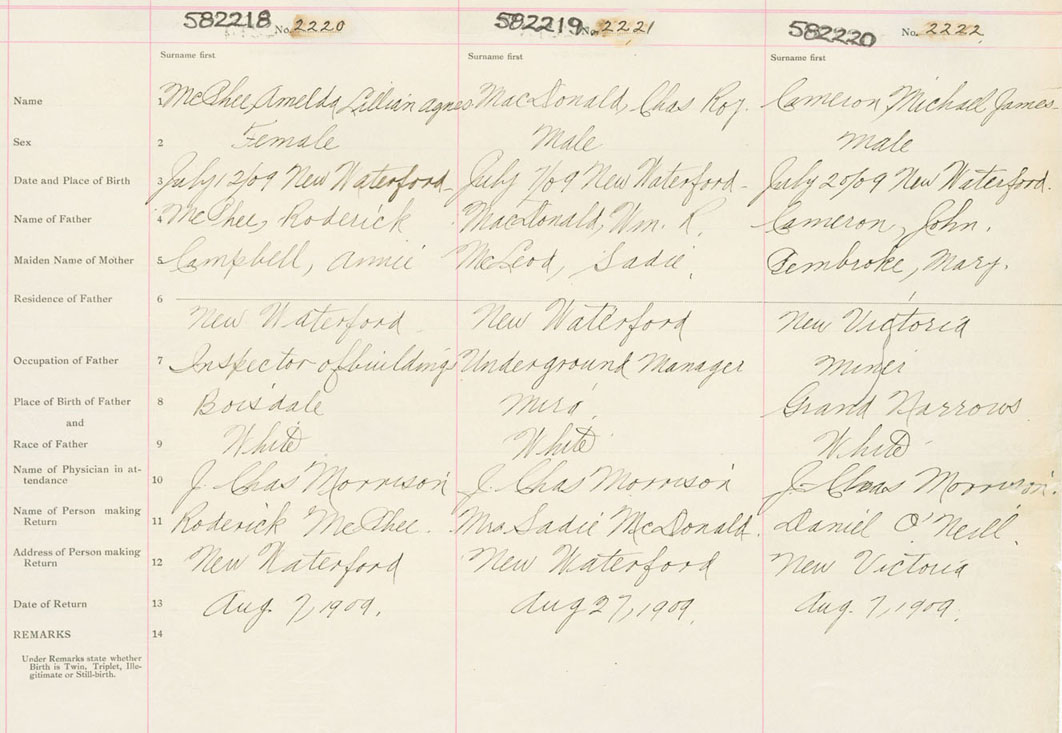 582218 No. 2220 582219 No. 2221 582220 No. 2222
Surname first Surname first Surname first
Name 1 McPhee, Amelda Lillian Agnes MacDonald, Chas Roy. Cameron, Michael James.
Sex 2 Female Male Male
Date and Place of Birth 3 July 12/09 New Waterford July 7/09 New Waterford July 20/09 New Waterford.
Name of Father 4 McPhee, Roderick MacDonald, Wm. R. Cameron, John.
Maiden Name of Mother 5 Campbell, Annie McLeod, Sadie Pembroke, Mary.
Residence of Father 6
New Waterford New Waterford New Victoria
Occupation of Father 7 Inspector of buildings Underground Manager Miner
Place of Birth of Father 8 Boisdale Mira Grand Narrows
and
Race of Father 9 White White White
Name of Physician in at-
tendance 10 J. Chas Morrison J. Chas Morrison J. Chas Morrison
Name of Person making
Return 11 Roderick McPhee. Mrs Sadie McDonald. Daniel O'Neill.
Address of Person making
Return 12 New Waterford New Waterford New Victoria
Date of Return 13 Aug. 7, 1909. Aug 27, 1909 Aug. 7, 1909.
REMARKS 14
Under Remarks state whether
Birth is Twin, Triplet, Ille-
gitimate or Still-birth.